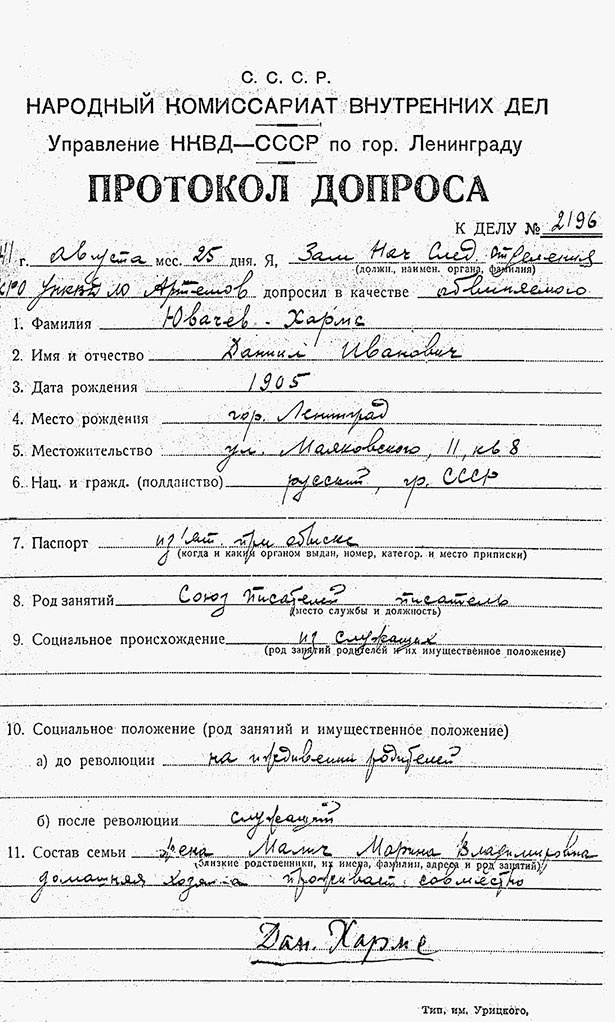 С. С. С. Р.
НАРОДНЫЙ КОМИССАРИАТ ВНУТРЕННИХ ДЕЛ
Управление НКВД—СССР по гор. Ленинграду
ПРОТОКОЛ ДОПРОСА
К ДЕЛУ № 2196
41 г. августа мес. 25 дня. Я, Зам Нач След. Отделения
(должн., наимен. органа, фамилия)
КРО УНКВД ЛО Артемов допросил в качестве обвиняемого
1. Фамилия Ювачев-Хармс
2. Имя и отчество Даниил Иванович
3. Дата рождения 1905
4. Место рождения гор. Ленинград
5. Местожительство ул. Маяковского, 11, кв 8
6. Нац. и гражд. (подданство) русский, гр. СССР
7. Паспорт из'ят при обыске
(когда и каким органом выдан, номер, категор. и место приписки)
8. Род занятий Союз Писателей писатель
(место службы и должность)
9. Социальное происхождение из служащих
(род занятий родителей и их имущественное положение)
10. Социальное положение (род занятий и имущественное положение)
а) до революции на иждивении родителей
б) после революции служащий
11. Состав семьи жена Малич Марина Владимировна
(близкие родственники, их имена, фамилии, адреса и род занятий)
домашняя хозяйка проживает совместно
Дан. Хармс
Тип. им. Урицкого,